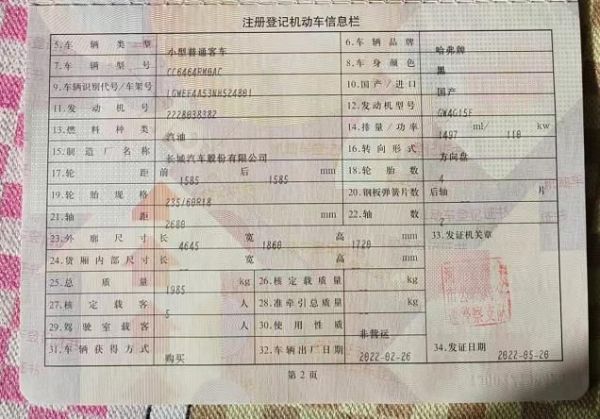 注册登记机动车信息栏
5.车辆类型 小型普通客车 6.车辆品牌 哈弗牌
7.车辆型号 CC6464RM0AC 8.车身颜色 黑
9.车辆识别代号/车架号 LGWEF4A53NH524801 10.国产/进口 国产
11.发动机号 2228038382 12.发动机型号 GW4G15F
13.燃料种类 汽油 14.排量/功率 1497 ml/ 110 kw
15.制造厂名称 长城汽车股份有限公司 16.转向形式 方向盘
17.轮距 前 1585 后 1585 mm 18.轮胎数 4
19.轮胎规格 235/60R18 20.钢板弹簧片数 后轴 片
21.轴距 2680 mm 22.轴数 2
23.外廓尺寸 长 4645 宽 1860 高 1720 mm 33.发证机关章
24.货厢内部尺寸 长 宽 高 mm
25.总质量 1985 kg 26.核定载质量 kg
27.核定载客 5 人 28.准牵引总质量 kg
29.驾驶室载客 人 30.使用性质 非营运
31.车辆获得方式 购买 32.车辆出厂日期 2022-02-26 34.发证日期 2022-05-20
第2页